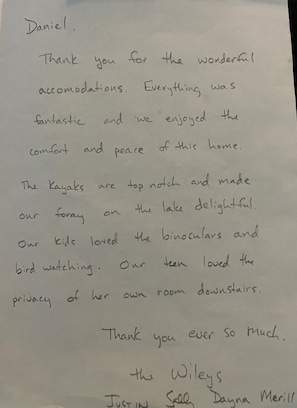 Daniel,
Thank you for the wonderful
accomodations. Everything was
fantastic and we enjoyed the
comfort and peace of this home.
The Kayaks are top notch and made
our foray on the lake delightful.
Our kids loved the binoculars and
bird watching. Our teen loved the
privacy of her own room downstairs.
Thank you ever so much.
the Wileys
JUSTIN Sally Dayna Merill